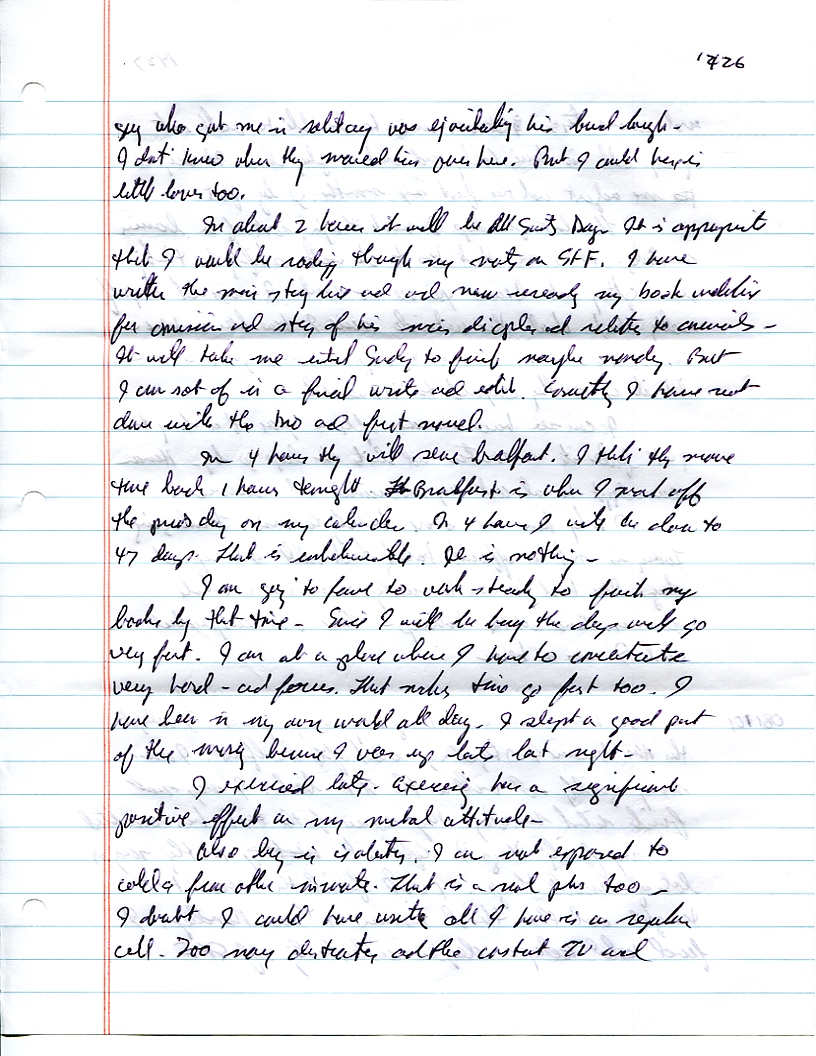 1426
guy who got me in solitary was ejaculating his
I don't know when they moved him over here. But I could hear is
little lover too.
In about 2 hours it will be All Saints Day. It is appropriate
that I would be reading through my notes on SFF. I have
written the main story line and and now my book
for omission and story of his and relates to
It will take me until Sunday to finish maybe monday. But
I am sort of in a final write and edit. I have not
done with the two and first novel.
In 4 hours they will serve breakfast. I think they move
time back 1 hours tonight. Breakfast is when I mark off
the previous day on my calendar. In 4 hours I will be down to
47 days. That is unbelievable. It is nothing -
I am going to have to work steady to finish my
books by that time - Since I will be busy the days will go
very fast. I am at a place where I have to concentrate
very hard - and focus. That makes time go fast too. I
have been in my own world all day. I slept a good part
of the morning because I was up late last night -
I exercised late. Exercising has a significant
positive effect on my mental attitude -
Also being in isolation, I am not exposed to
colds from other inmates. That is a real plus too -
I doubt I could have written all I have in a regular
cell. Too many distractions and the constant TV and